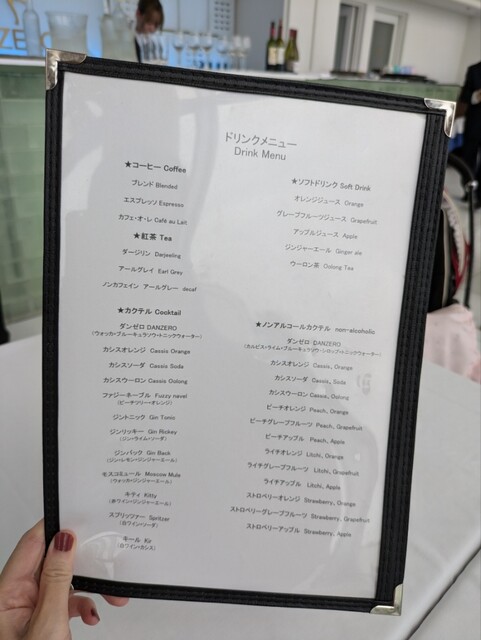 ドリンクメニュー
Drink Menu
★コーヒー Coffee
ブレンド Blended
エスプレッソ Espresso
カフェ・オ・レ Café au Lait
★紅茶 Tea
ダージリン Darjeeling
アールグレイ Earl Grey
ノンカフェイン アールグレー decaf
★カクテル Cocktail
ダンゼロ DANZERO
(ウォッカ・ブルーキュラソウ・トニックウォーター)
カシスオレンジ Cassis Orange
カシスソーダ Cassis Soda
カシスウーロン Cassis Oolong
ファジーネーブル Fuzzy navel
(ピーチツリー・オレンジ)
ジントニック Gin Tonic
ジンリッキー Gin Rickey
(ジン・ライム・ソーダ)
ジンバック Gin Back
(ジン・レモン・ジンジャーエール)
モスコミュール Moscow Mule
(ウォッカ・ジンジャーエール)
キティ Kitty
(赤ワイン・ジンジャーエール)
スプリッツァー Spritzer
(白ワイン・ソーダ)
キール Kir
(白ワイン・カシス)
★ソフトドリンク Soft Drink
オレンジジュース Orange
グレープフルーツジュース Grapefruit
アップルジュース Apple
ジンジャーエール Ginger ale
ウーロン茶 Oolong Tea
★ノンアルコールカクテル non-alcoholic
ダンゼロ DANZERO
(カルピス・ライム・ブルーキュラソウ・シロップ・トニックウォーター)
カシスオレンジ Cassis, Orange
カシスソーダ Cassis, Soda
カシスウーロン Cassis, Oolong
ピーチオレンジ Peach, Orange
ピーチグレープフルーツ Peach, Grapefruit
ピーチアップル Peach, Apple
ライチオレンジ Litchi, Orange
ライチグレープフルーツ Litchi, Grapefruit
ライチアップル Litchi, Apple
ストロベリーオレンジ Strawberry, Orange
ストロベリーグレープフルーツ Strawberry, Grapefruit
ストロベリーアップル Strawberry, Apple